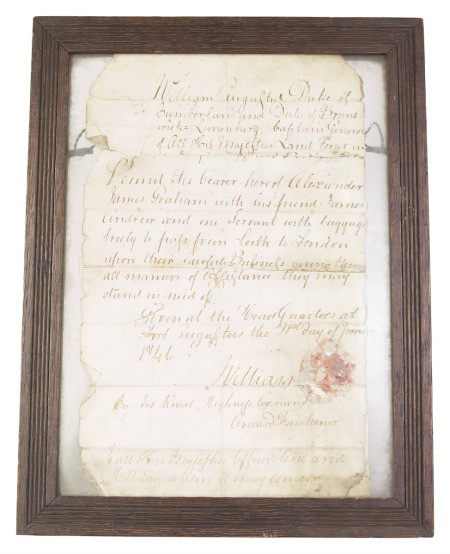 William Augustus Duke of
Cumberland and Duke of Bruns
wick = Lunenburg, Captain General
of All His Majesties Land Forces in
Permit the bearer hereof Alexander
James Graham with his friend James
Andrew and one Servant with baggage
freely to pass from Leith to London
upon their lawfull Business giving them
all manners of Assistance they may
stand in need of.
Given at the Head Quarters at
Fort Augustus the Day of June
1746
William
By his Royal Highness Command
Everard Fawkener
To all His Majesties Officers Civil and
Military whom it may concern